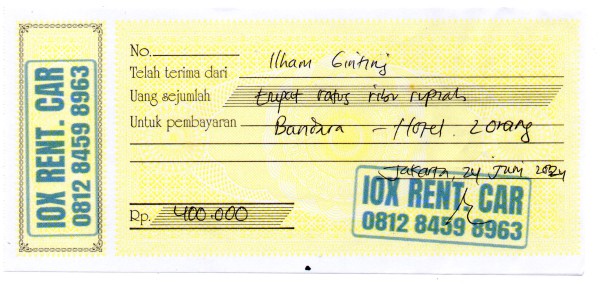 IOX RENT. CAR
0812 8459 8963
No.
Telah terima dari Ilham Ginting
Uang sejumlah Empat ratus ribu rupiah
Untuk pembayaran Bandara - Hotel. 2 orang
Jakarta, 24 Juni 2024
IOX RENT. CAR
0812 8459 8963
Rp. 400.000